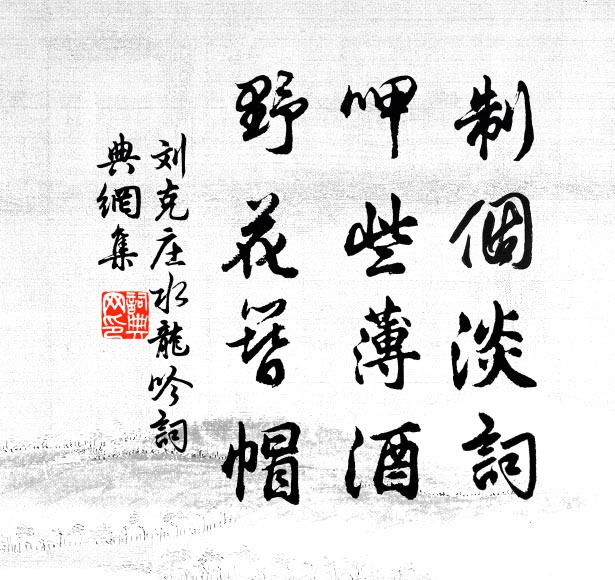 制個淡詞
呷些薄酒
野花簪帽
刘克庄水龍吟詞
典網集
詞典网印